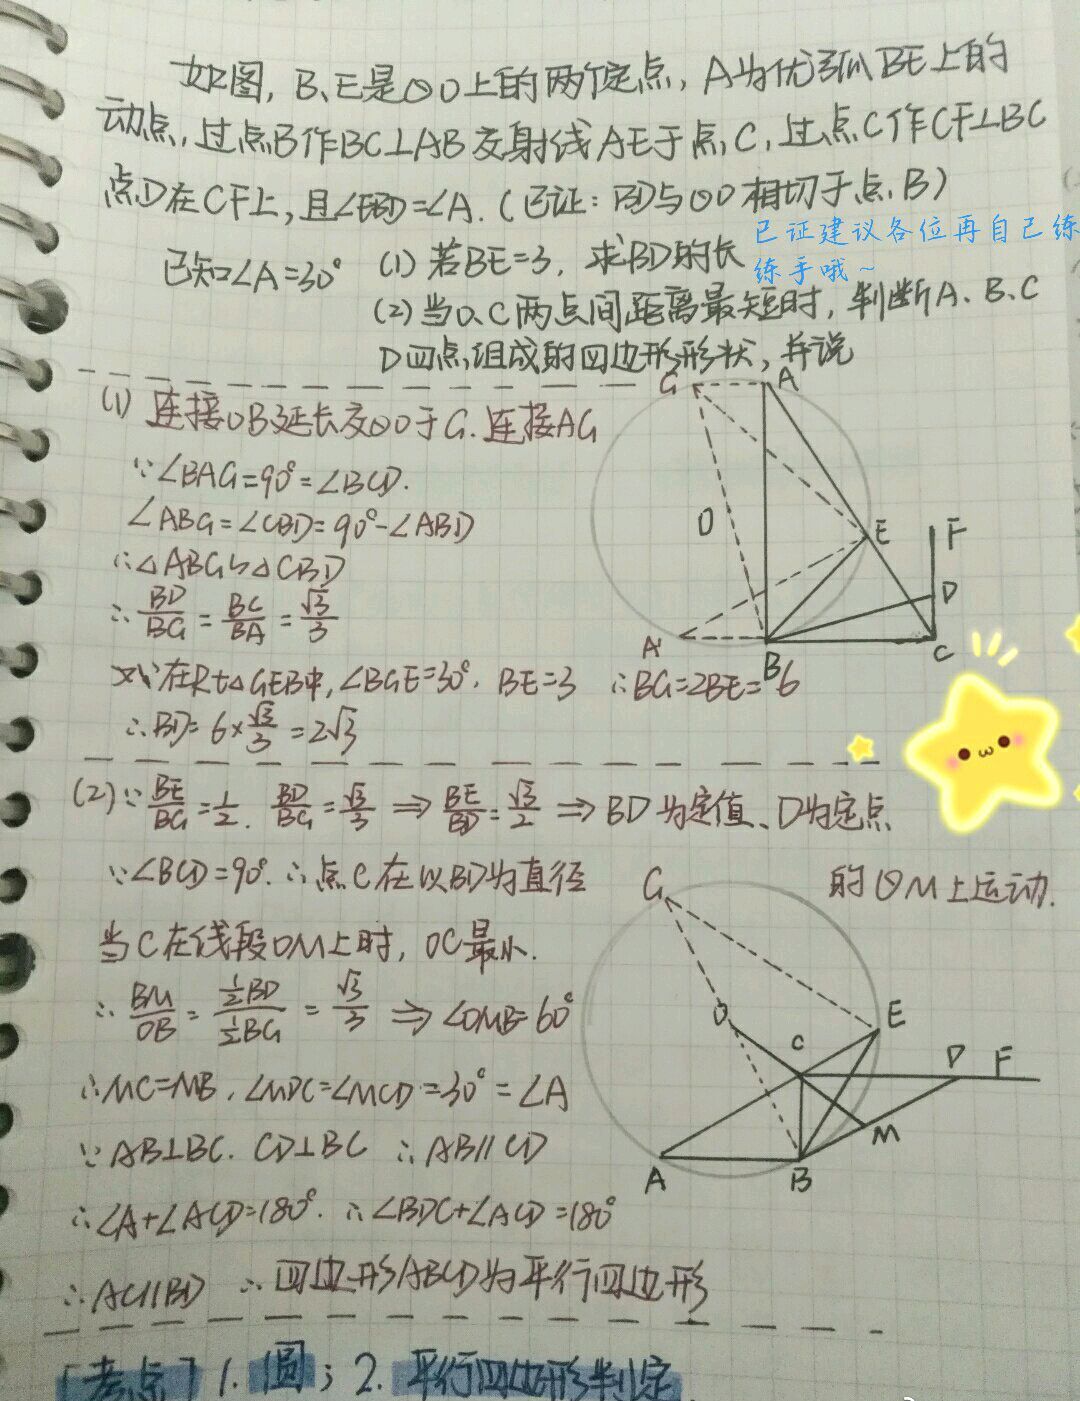 如图,B、E是⊙O上的两个定点,A为优弧BE上的
动点,过点B作BC⊥AB交射线AE于点C,过点C作CF⊥BC
点D在CF上,且∠EBD=∠A.(已证:BD与⊙O相切于点B)
已证建议各位再自己练
练手哦~
已知∠A=30° (1)若BE=3,求BD的长
(2)当O、C两点间距离最短时,判断A、B、C
D四点组成的四边形形状,并说
(1)连接OB延长交⊙O于G.连接AG
∵∠BAG=90°=∠BCD.
∠ABG=∠CBD=90°-∠ABD
∴△ABG∽△CBD
∴BD/BG=BC/BA=√3/3
又∵在Rt△GEB中,∠BGE=30°,BE=3 ∴BG=2BE=6
∴BD=6×√3/3=2√3
G A
O E F
D
A' B C
(2)∵BE/BG=1/2.BD/BG=√3/3⇒BE/BD=√3/2⇒BD为定值、D为定点
∵∠BCD=90°.∴点C在以BD为直径 的⊙M上运动.
当C在线段OM上时,OC最小.
∴BM/OB=½BD/½BG=√3/3⇒∠OMB=60°
∴MC=MB,∠MDC=∠MCD=30°=∠A
∵AB⊥BC.CD⊥BC ∴AB∥CD
∴∠A+∠ACD=180°.∴∠BDC+∠ACD=180°
∴AC∥BD ∴四边形ABCD为平行四边形
G
O E
C D F
M
A B
[考点]1.圆;2.平行四边形判定